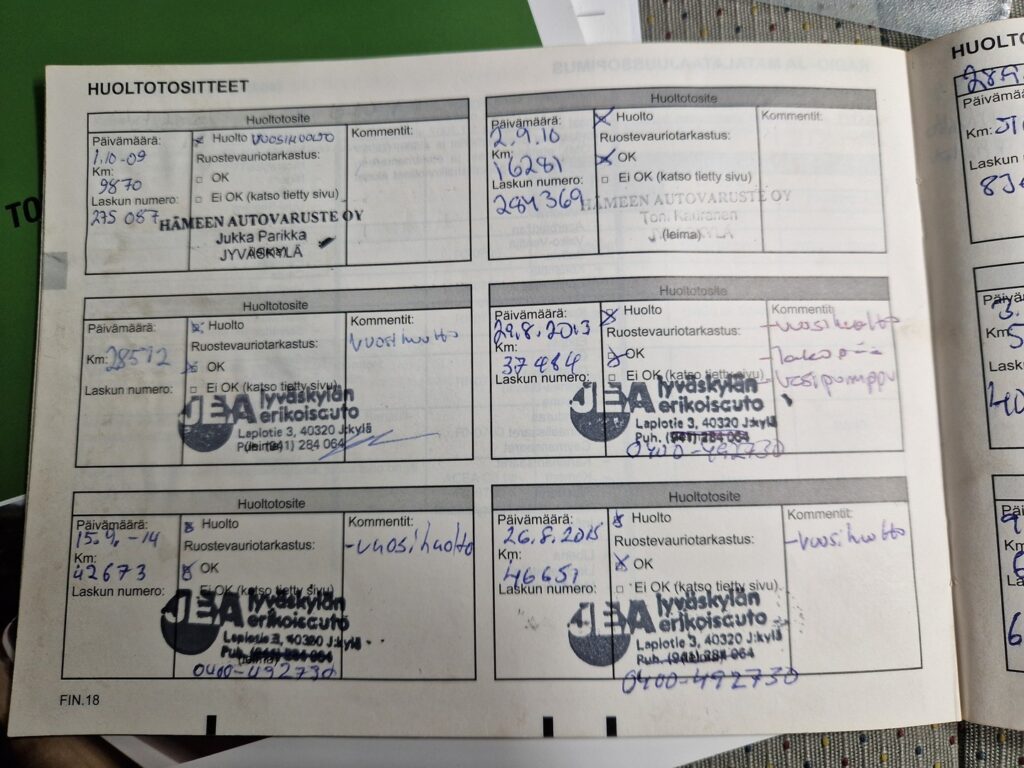 HUOLTOTOSITTEET
Huoltotosite
Päivämäärä:
1.10-09
Km:
9870
Laskun numero:
275 087
Huolto VUOSIHUOLTO
Ruostevauriotarkastus:
OK
Ei OK (katso tietty sivu)
Kommentit:
HÄMEEN AUTOVARUSTE OY
Jukka Parikka
JYVÄSKYLÄ
Huoltotosite
Päivämäärä:
2.9.10
Km:
16281
Laskun numero:
284369
Huolto
Ruostevauriotarkastus:
OK
Ei OK (katso tietty sivu)
Kommentit:
HÄMEEN AUTOVARUSTE OY
Toni Kauranen
(leima)
JYVÄSKYLÄ
Huoltotosite
Päivämäärä:
Km: 28512
Laskun numero:
Huolto
Ruostevauriotarkastus:
OK
Ei OK (katso tietty sivu)
Kommentit:
vuosihuolto
JEA Jyväskylän
erikoisauto
Lapiotie 3, 40320 J:kylä
Puh. (941) 284 064
Huoltotosite
Päivämäärä:
29.8.2013
Km:
37484
Laskun numero:
Huolto
Ruostevauriotarkastus:
OK
Ei OK (katso tietty sivu)
Kommentit:
-vuosihuolto
-vesipumppu
JEA Jyväskylän
erikoisauto
Lapiotie 3, 40320 J:kylä
Puh. (941) 284 064
0400-492730
Huoltotosite
Päivämäärä:
15.4.-14
Km:
42673
Laskun numero:
Huolto
Ruostevauriotarkastus:
OK
Ei OK (katso tietty sivu)
Kommentit:
-vuosihuolto
JEA Jyväskylän
erikoisauto
Lapiotie 3, 40320 J:kylä
Puh. (941) 284 064
(leima)
0400-492730
Huoltotosite
Päivämäärä:
26.8.2015
Km:
46651
Laskun numero:
Huolto
Ruostevauriotarkastus:
OK
Ei OK (katso tietty sivu)
Kommentit:
-vuosihuolto
JEA Jyväskylän
erikoisauto
Lapiotie 3, 40320 J:kylä
Puh. (941) 284 064
0400-492730
FIN.18